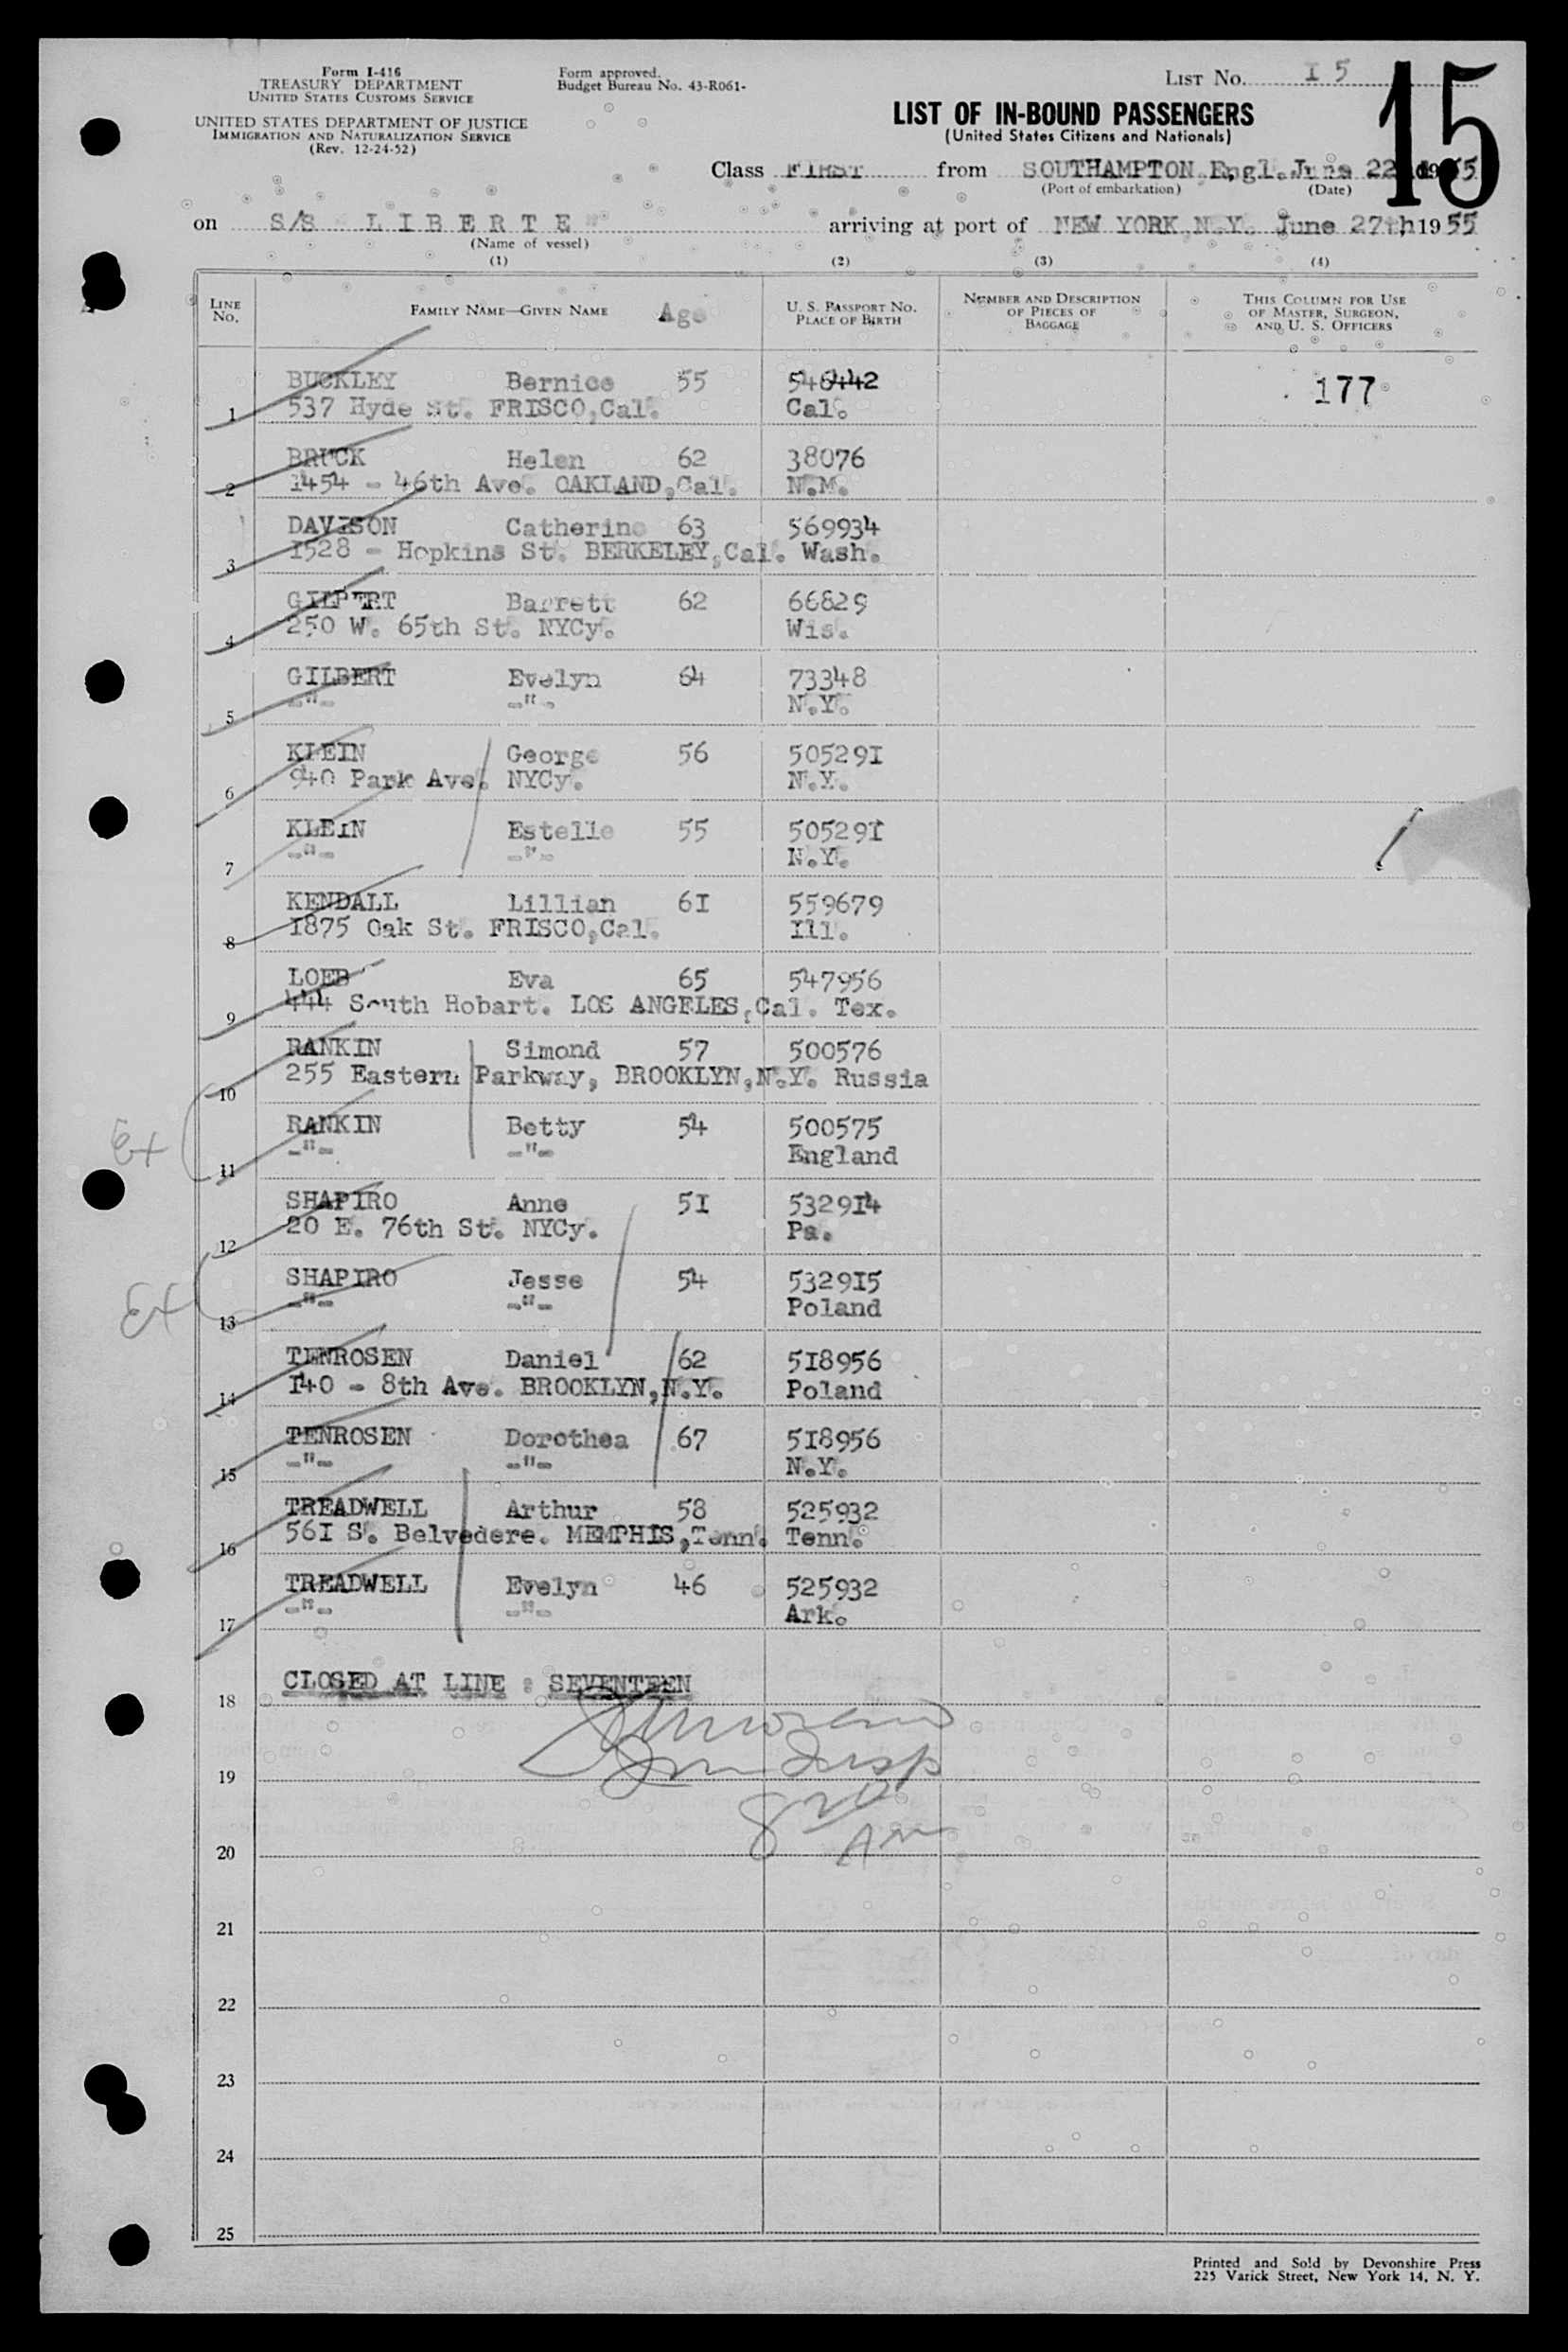 Form I-416
TREASURY DEPARTMENT
UNITED STATES CUSTOMS SERVICE
UNITED STATES DEPARTMENT OF JUSTICE
IMMIGRATION AND NATURALIZATION SERVICE
(Rev. 12-24-52)
Form approved.
Budget Bureau No. 43-R061-
LIST No. I5
15
LIST OF IN-BOUND PASSENGERS
(United States Citizens and Nationals)
Class FIRST from SOUTHAMPTON, Engl. June 22 1955
(Port of embarkation) (Date)
on S/S LIBERTE arriving at port of NEW YORK, N.Y. June 27th 1955
(Name of vessel)
(1) (2) (3) (4)
LINE No. FAMILY NAME—GIVEN NAME Age U. S. PASSPORT NO. PLACE OF BIRTH NUMBER AND DESCRIPTION OF PIECES OF BAGGAGE THIS COLUMN FOR USE OF MASTER, SURGEON, AND U. S. OFFICERS
BUCKLEY Bernice 55 546442 177
1 537 Hyde St. FRISCO,Cal. Cal.
BRUCK Helen 62 38076
2 1454 - 46th Ave. OAKLAND,Cal. N.M.
DAVISON Catherine 63 569934
3 1528 - Hopkins St. BERKELEY,Cal. Wash.
GILBERT Barrett 62 66829
4 250 W. 65th St. NYCy. Wis.
GILBERT Evelyn 64 73348
5 -"- -"- N.Y.
KLEIN George 56 50529I
6 940 Park Ave. NYCy. N.Y.
KLEIN Estelle 55 50529I
7 -"- -"- N.Y.
KENDALL Lillian 6I 559679
8 I875 Oak St. FRISCO,Cal. Ill.
LOEB Eva 65 547956
9 444 South Hobart. LOS ANGELES,Cal. Tex.
RANKIN Simond 57 500576
10 255 Eastern Parkway, BROOKLYN,N.Y. Russia
RANKIN Betty 54 500575
Ex
11 -"- -"- England
SHAPIRO Anne 5I 5329I4
12 20 E. 76th St. NYCy. Pa.
SHAPIRO Jesse 54 5329I5
Ex
13 -"- -"- Poland
TENROSEN Daniel 62 5I8956
14 I40 - 8th Ave. BROOKLYN,N.Y. Poland
TENROSEN Dorothea 67 5I8956
15 -"- -"- N.Y.
TREADWELL Arthur 58 525932
16 56I S. Belvedere. MEMPHIS,Tenn. Tenn.
TREADWELL Evelyn 46 525932
17 -"- -"- Ark.
CLOSED AT LINE : SEVENTEEN
18
19
20 AM
21
22
23
24
25
Printed and Sold by Devonshire Press
225 Varick Street, New York 14, N. Y.